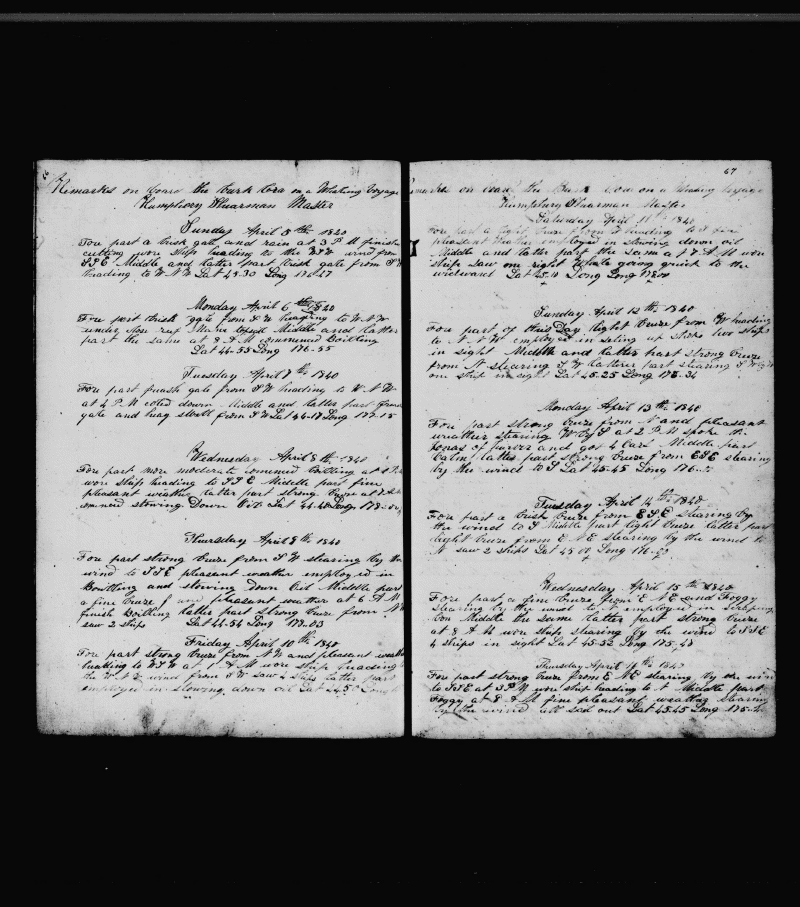 Remarks on board the Bark Cora on a Whaling Voyage
Humphory Shearman Master
Sunday April 5th 1840
Fore part a brisk gale and rain at 3 P M finish
cutting wore ship heading to the WSW wind from
SSE Middle and latter part brisk gale from SW
heading to W N W Lat 43.30 Long
Monday April 6th 1840
Fore part brisk gate from S W heading to W N W
under close ref Main topsil Middle and latter
part the same at 8 A M commenced Boilling
Lat 44-55 Long 176-55
Tuesday April 7th 1840
Fore part fresh gale from S W heading to W N W
at 4 P M coled down Middle and latter part
gate and heavy swell from S W Lat 44-17 Long 177.15
Wednesday April 8th 1840
Fore part more moderate commenced Boilling at
wore ship heading to S S E Middle part fine
pleasant weather latter part strong Breze at
comenced stowing Down Oil Lat 44.48 Long 178
Thursday April 8th 1840
Fore part strong breze from S W stearing by the
wind to S S E pleasant weather employed in
Boilling and stowing down Oil Middle part
a fine breze and pleasant weather at 6 A M
finish Boilling latter part strong breze from N W
saw 2 ships Lat 44.54 Long 178.03
Friday April 10th 1840
Fore part strong breze from N W and pleasant weather
heading to W S W at 1 A M wore ship heading
the wind from S W saw 4 ships latter part
employed in stowing down oil Lat
67
Remarks on board the Bark Cora on a Whaling Voyage
Humphory Shearman Master
Saturday April 11th 1840
Fore part a light breze from heading to
pleasant weather employed in stowing down oil
Middle and latter part the same at 7 A M wore
ship saw on right Whale going quick to the
windward Lat 45.10 Long
Sunday April 12th 1840
Fore part of this Day light breze from W heading
to N N W employed in seting up Shoks two ships
in sight Middle and latter part strong breze
from N stearing S W latter part stearing
one ship in sight Lat 45-25 Long 175-34
Monday April 13th 1840
Fore part strong breze from N and pleasant
weather stearing W by S at 2 P M spoke the
and got 4 Middle part
calm latter part strong breze from ESE stearing
by the wind to S Lat 45-45 Long 176
Tuesday April 14th 1840
Fore part a brisk breze from E S E stearing by
the wind to S Middle part light breze latter part
light breze from E N E stearing by the wind to
N saw 2 ships Lat 45 Long 176
Wednesday April 15th 1840
Fore part a fine breze from E N E and Foggy
stearing by the wind to N employed in scraping
bon Middle the same latter part strong breze
at 8 A M wore ship stearing by the wind to SSE
4 ships in sight Lat 45-52 Long 175-48
Thursday April 1840
Fore part strong breze from E N E stearing by the wind
to SSE at 3 P M wore ship heading to N Middle part
Foggy at 8 A M fine pleasant weather stearing
by the wind all sail out Lat 45.45 Long 175